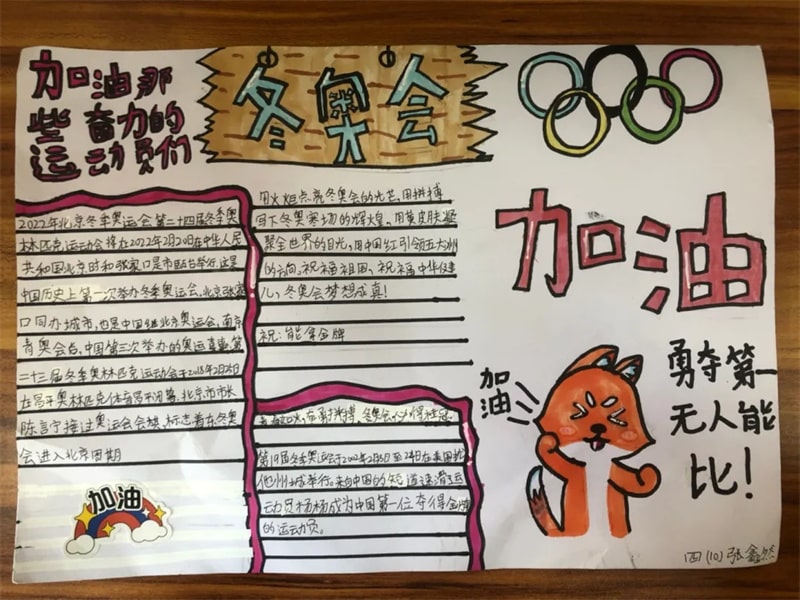 加油那
些奋力的
运动员们
冬奥会
2022年北京冬季奥运会第二十四届冬季奥
林匹克运动会将在2022年2月20日在中华人民
共和国北京时和张家口是市联合举行。这里
中国历史上第一次举办冬季奥运会，北京张家
口同办城市，也是中国继北京奥运会，南京
青奥会后，中国第三次举办的奥运赛事。第
二十三届冬季奥林匹克运动会于2018年2月25日
在昌平奥林匹克体育昌平油幕，北京市市长
陈吉宁接过奥运会会旗，标志着东冬奥
会进入北京周期
加油
用火炬点亮冬奥会的光芒，用拼搏
写下冬奥赛场的辉煌，用黄皮肤凝
聚全世界的目光，用中国红引领五大洲
的方向，祝福祖国，祝福中华健
儿，冬奥会梦想成真！
祝：能拿金牌
第19届冬季奥运会于2002年2月8日至24日在美国
他州城举行。来自中国的短道速滑运
动员杨杨成为中国第一位夺得金牌
的运动员。
加油
加油
勇夺第一
无人能
比！
四(10)张鑫然